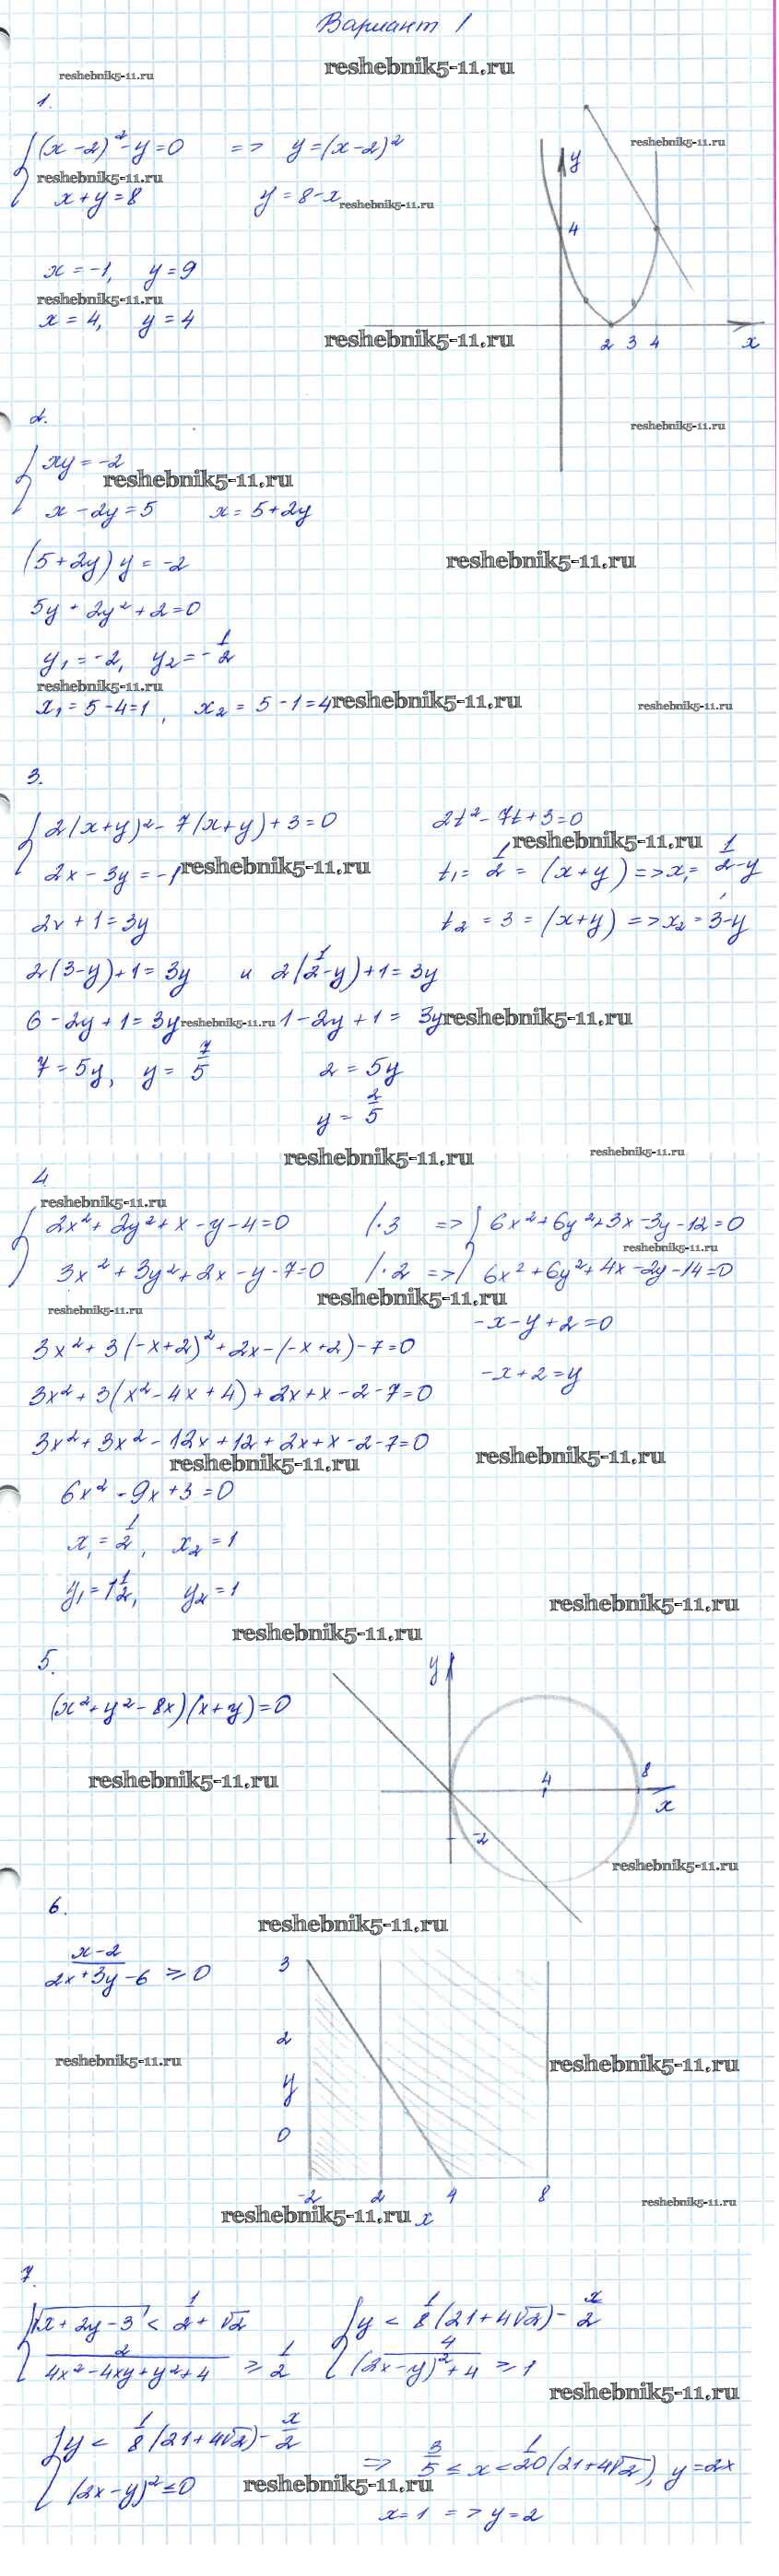 Вариант 1
reshebnik5-11.ru
reshebnik5-11.ru
1.
(x-2)²-y=0 => y=(x-2)²
reshebnik5-11.ru
reshebnik5-11.ru
x+y=8 y=8-x
reshebnik5-11.ru
y
4
x=-1, y=9
reshebnik5-11.ru
x=4, y=4
reshebnik5-11.ru
2 3 4 x
reshebnik5-11.ru
2.
xy=-2
reshebnik5-11.ru
x-2y=5 x=5+2y
(5+2y)y=-2
reshebnik5-11.ru
5y+2y²+2=0
y₁=-2, y₂=-1/2
reshebnik5-11.ru
x₁=5-4=1, x₂=5-1=4
reshebnik5-11.ru
reshebnik5-11.ru
3.
2(x+y)²-7(x+y)+3=0 2t²-7t+3=0
reshebnik5-11.ru
2x-3y=-1 t₁=1/2=(x+y)=>x₁=1/2-y
reshebnik5-11.ru
2x+1=3y t₂=3=(x+y)=>x₂=3-y
2(3-y)+1=3y и 2(1/2-y)+1=3y
6-2y+1=3y 1-2y+1=3y
reshebnik5-11.ru
reshebnik5-11.ru
7=5y, y=7/5 2=5y
y=2/5
reshebnik5-11.ru
reshebnik5-11.ru
4.
reshebnik5-11.ru
2x²+2y²+x-y-4=0 |·3 => 6x²+6y²+3x-3y-12=0
reshebnik5-11.ru
3x²+3y²+2x-y-7=0 |·2 => 6x²+6y²+4x-2y-14=0
reshebnik5-11.ru
reshebnik5-11.ru
-x-y+2=0
3x²+3(-x+2)²+2x-(-x+2)-7=0
-x+2=y
3x²+3(x²-4x+4)+2x+x-2-7=0
3x²+3x²-12x+12+2x+x-2-7=0
reshebnik5-11.ru
reshebnik5-11.ru
6x²-9x+3=0
x₁=1/2, x₂=1
y₁=1 1/2, y₂=1
reshebnik5-11.ru
reshebnik5-11.ru
5.
y
(x²+y²-8x)(x+y)=0
reshebnik5-11.ru
4 8
x
-2
reshebnik5-11.ru
6.
reshebnik5-11.ru
(x-2)/(2x+3y-6) ≥ 0
3
2
reshebnik5-11.ru
reshebnik5-11.ru
y
0
-2 2 4 8
reshebnik5-11.ru
x
reshebnik5-11.ru
7.
√(x+2y-3) < 1/2+√2 y < 1/8(21+4√2)-x/2
2/(4x²-4xy+y²+4) ≥ 1/2 4/((2x-y)²+4) ≥ 1
reshebnik5-11.ru
y < 1/8(21+4√2)-x/2
=> 3/5 ≤ x < 1/20(21+4√2), y=2x
(2x-y)² ≤ 0
reshebnik5-11.ru
x=1 => y=2